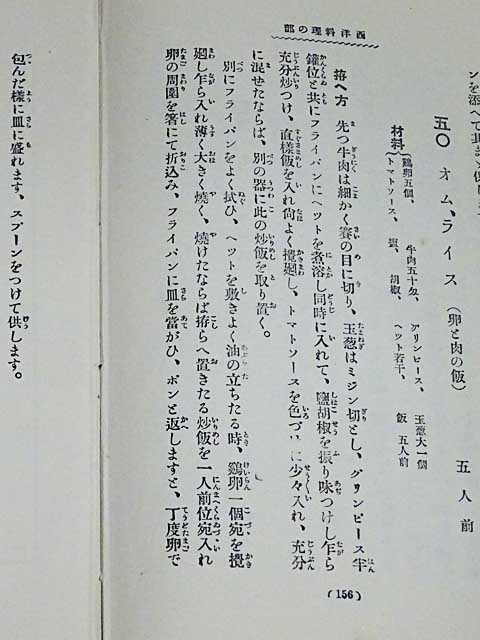 西洋料理の部
ンを添へて
五〇 オム、ライス (卵と肉の飯) 五人前
材料 鷄卵五個、 牛肉五十匁、 グリンピース、 玉葱大一個
トマトソース、 塩、 胡椒、 ヘット若干、 飯 五人前
拵へ方 先つ牛肉は細かく賽の目に切り、玉葱はミジン切とし、グリンピース半
鑵位と共にフライパンにヘットを煮溶し同時に入れて、鹽胡椒を振り味つけし乍ら
充分炒つけ、直樣飯を入れ尙よく攪廻し、トマトソースを色づけに少々入れ、充分
に混せたならば、別の器に此の炒飯を取り置く。
別にフライパンをよく拭ひ、ヘットを敷きよく油の立ちたる時、鷄卵一個宛を攪
廻し乍ら入れ薄く大きく燒く、燒けたならば拵らへ置きたる炒飯を一人前位宛入れ
卵の周圍を箸にて折込み、フライパンに皿を當がひ、ポンと返しますと、丁度卵で
(156)
包んだ樣に皿に盛れます、スプーンをつけて供します。